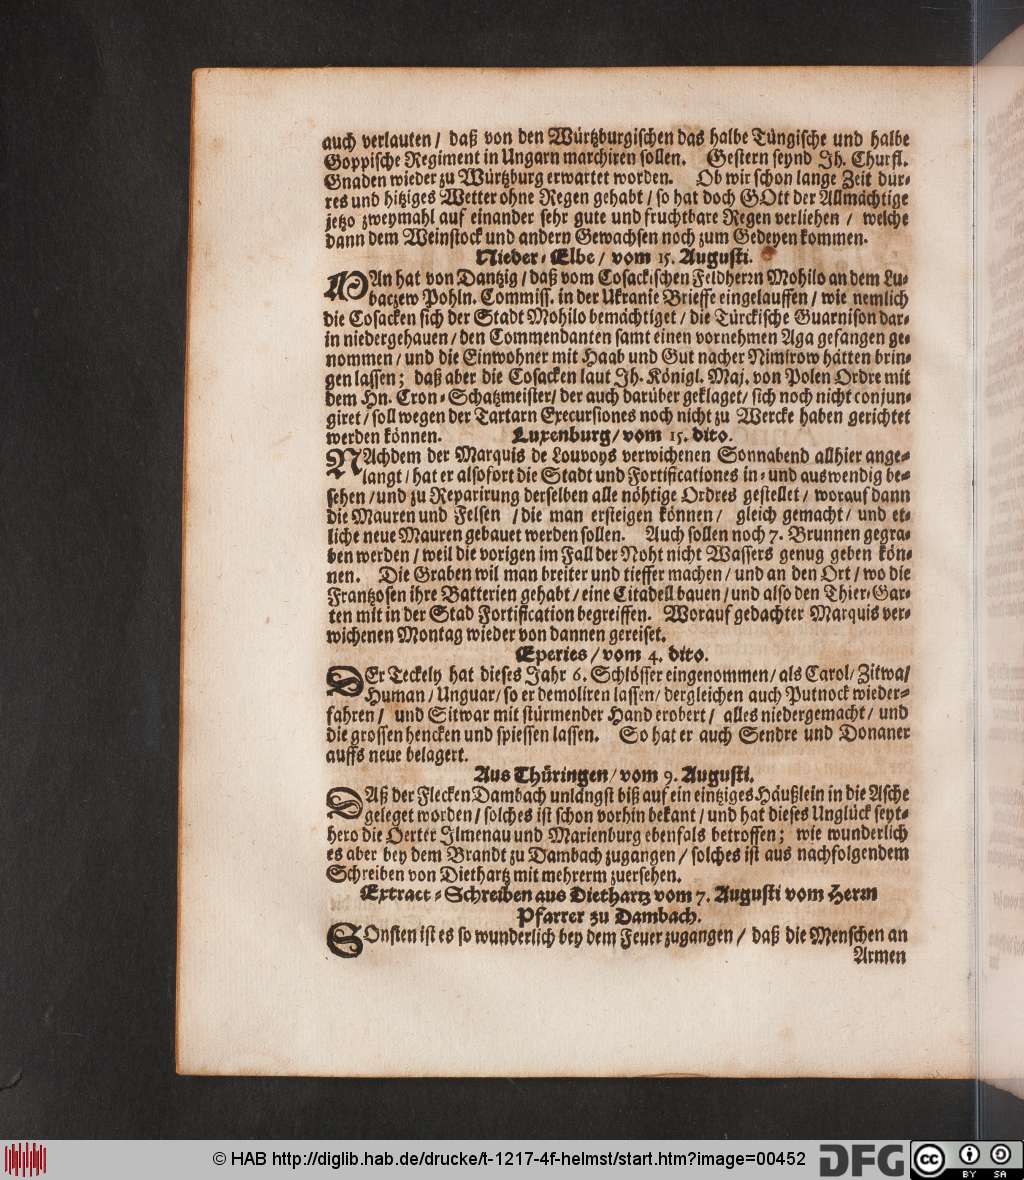 auch verlauten / daß von den Würtzburgischen das halbe Tüngische und halbe
Goppische Regiment in Ungarn marchiren sollen. Gestern seynd Ih. Churfl.
Gnaden wieder zu Würtzburg erwartet worden. Ob wir schon lange Zeit dür-
res und hitziges Wetter ohne Regen gehabt / so hat doch GOtt der Allmächtige
jetzo zweymahl auf einander sehr gute und fruchtbare Regen verliehen / welche
dann dem Weinstock und andern Gewächsen noch zum Gedeyen kommen.
Nieder-Elbe / vom 15. Augusti.
MAn hat von Dantzig / daß vom Cosackischen Feldherrn Mohilo an dem Lu-
baczew Pohln. Commiss. in der Ukranie Brieffe eingelauffen / wie nemlich
die Cosacken sich der Stadt Mohilo bemächtiget / die Türckische Guarnison dar-
in niedergehauen / den Commendanten samt einen vornehmen Aga gefangen ge-
nommen / und die Einwohner mit Haab und Gut nacher Nimirow hätten brin-
gen lassen; daß aber die Cosacken laut Ih. Königl. Maj. von Polen Ordre mit
dem Hn. Cron-Schatzmeister / der auch darüber geklaget / sich noch nicht conjun-
giret / soll wegen der Tartarn Execursiones noch nicht zu Wercke haben gerichtet
werden können. Luxenburg / vom 15. dito.
NAchdem der Marquis de Louvoys verwichenen Sonnabend allhier ange-
langt / hat er alsofort die Stadt und Fortificationes in- und auswendig be-
sehen / und zu Reparirung derselben alle nöhtige Ordres gestellet / worauf dann
die Mauren und Felsen / die man ersteigen können / gleich gemacht / und et-
liche neue Mauren gebauet werden sollen. Auch sollen noch 7. Brunnen gegra-
ben werden / weil die vorigen im Fall der Noht nicht Wassers genug geben kön-
nen. Die Graben wil man breiter und tieffer machen / und an den Ort / wo die
Frantzosen ihre Batterien gehabt / eine Citadell bauen / und also den Thier-Gar-
ten mit in der Stad Fortification begreiffen. Worauf gedachter Marquis ver-
wichenen Montag wieder von dannen gereiset.
Eperies / vom 4. dito.
DEr Teckely hat dieses Jahr 6. Schlösser eingenommen / als Carol / Zitwa /
Human / Unguar / so er demoliren lassen / dergleichen auch Putnock wieder-
fahren / und Sitwar mit stürmender Hand erobert / alles niedergemacht / und
die grossen hencken und spiessen lassen. So hat er auch Sendre und Donaner
auffs neue belagert.
Aus Thüringen / vom 9. Augusti.
DAß der Flecken Dambach unlängst biß auf ein eintziges Häußlein in die Asche
geleget worden / solches ist schon vorhin bekant / und hat dieses Unglück seyt-
hero die Oerter Ilmenau und Marienburg ebenfals betroffen; wie wunderlich
es aber bey dem Brandt zu Dambach zugangen / solches ist aus nachfolgendem
Schreiben von Diethartz mit mehrerm zuersehen.
Extract-Schreiben aus Diethartz vom 7. Augusti vom Herrn
Pfarrer zu Dambach.
SOnsten ist es so wunderlich bey dem Feuer zugangen / daß die Menschen an
Armen
© HAB http://diglib.hab.de/drucke/t-1217-4f-helmst/start.htm?image=00452
DFG
cc
BY SA